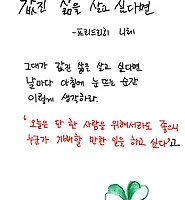 값진 삶을 살고 싶다면
-프리드리히 니체
그대가 값진 삶을 살고 싶다면
날마다 아침에 눈 뜨는 순간
이렇게 생각하라.
"오늘은 단 한 사람을 위해서라도 좋으니
누군가 기뻐할 만한 일을 하고 싶다"고